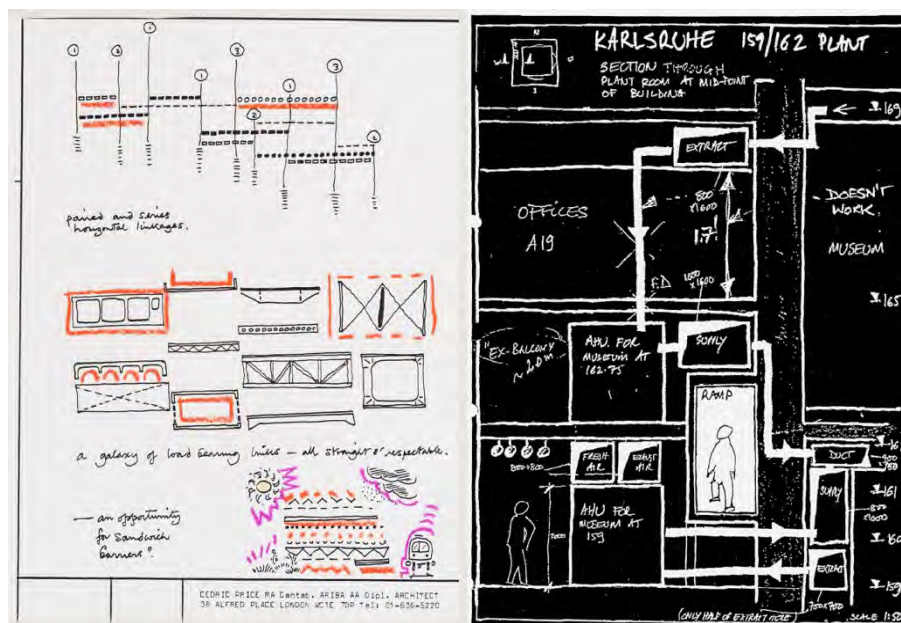 1
3
1
1
3
2
1
3
2
paired and series
horizontal linkages.
a galaxy of load bearing links — all straight & respectable.
— an opportunity
for Sandwich
barriers?
CEDRIC PRICE MA Cantab. ARIBA AA Dipl. ARCHITECT
38 ALFRED PLACE LONDON WC1E 7DP Tel: 01-636-5220
KARLSRUHE 159/162 PLANT
SECTION THROUGH
PLANT ROOM AT MID-POINT
OF BUILDING
N
169
EXTRACT
800
×1600
1.7!
DOESN'T
WORK.
MUSEUM
OFFICES
A19
F.D
1000
×1600
165
"EX-BALCONY
~2.0m
AHU FOR
MUSEUM AT
162.75
SUPPLY
RAMP
DUCT
FRESH
AIR
EXHAUST
AIR
800×800
SUPPLY
161
800
×1600
AHU FOR
MUSEUM AT
159
160
EXTRACT
159
700×700
(ONLY HALF OF EXTRACT HERE)
SCALE 1:50